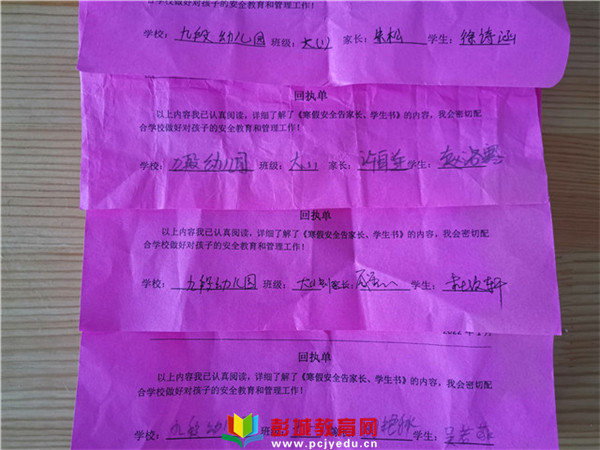 合学校做好对孩子的安全教育和管理工作!
学校: 九段幼儿园 班级: 大(1) 家长: 朱松 学生: 徐诗涵
回执单
以上内容我已认真阅读,详细了解了《寒假安全告家长、学生书》的内容,我会密切配
合学校做好对孩子的安全教育和管理工作!
学校: 九段幼儿园 班级: 大(1) 家长: 学生:
回执单
以上内容我已认真阅读,详细了解了《寒假安全告家长、学生书》的内容,我会密切配
合学校做好对孩子的安全教育和管理工作!
学校: 九段幼儿园 班级: 家长: 学生:
2022 年 1 月
回执单
以上内容我已认真阅读,详细了解了《寒假安全告家长、学生书》的内容,我会密切配
合学校做好对孩子的安全教育和管理工作!
学校: 九段幼 班级: 学生:
彭城教育网
www.pcjyedu.cn